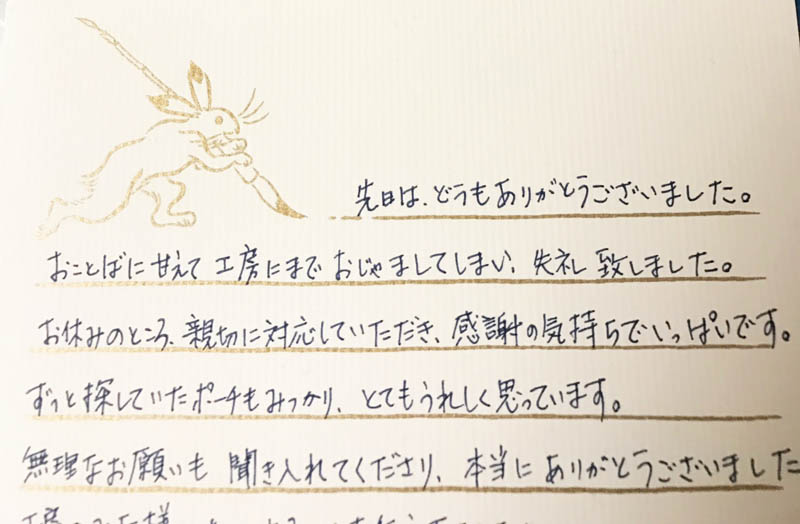 先日は、どうもありがとうございました。
おことばに甘えて工房にまでおじゃましてしまい、失礼致しました。
お休みのところ、親切に対応していただき、感謝の気持ちでいっぱいです。
ずっと探していたポーチもみつかり、とてもうれしく思っています。
無理なお願いも聞き入れてくださり、本当にありがとうございました